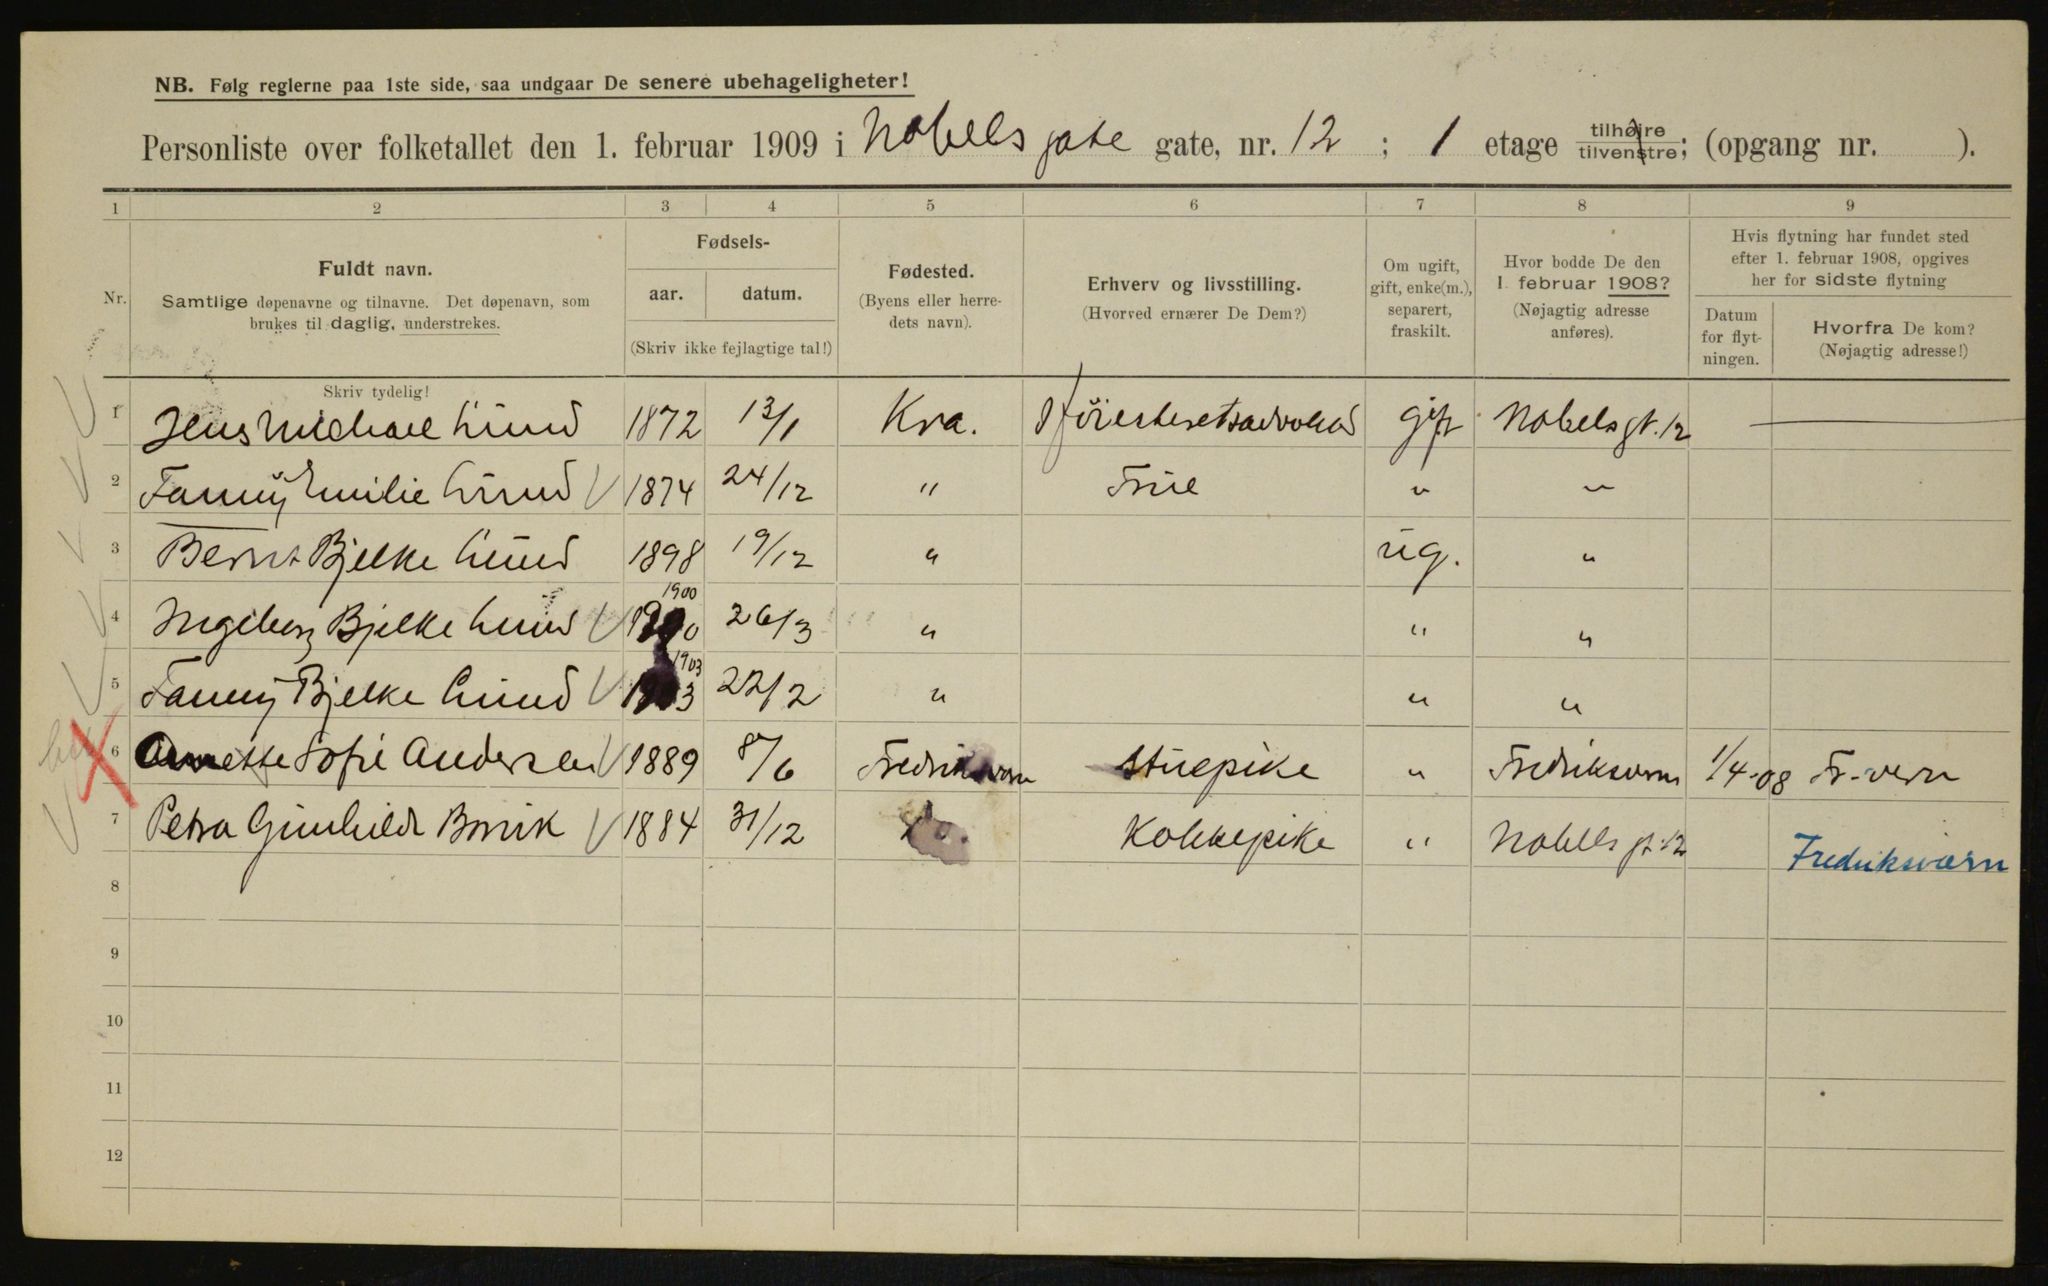 NB. Følg reglerne paa 1ste side, saa undgaar De senere ubehageligheter!
Personliste over folketallet den 1. februar 1909 i Nobels gate gate, nr. 12 ; 1 etage tilhøire tilvenstre; (opgang nr. ).
1 2 3 4 5 6 7 8 9
Nr.
Fuldt navn.
Samtlige døpenavne og tilnavne. Det døpenavn, som
brukes til daglig, understrekes.
Skriv tydelig!
Fødsels-
aar. datum.
(Skriv ikke fejlagtige tal!)
Fødested.
(Byens eller herre-
dets navn).
Erhverv og livsstilling.
(Hvorved ernærer De Dem?)
Om ugift,
gift, enke(m.),
separert,
fraskilt.
Hvor bodde De den
1. februar 1908?
(Nøjagtig adresse
anføres).
Hvis flytning har fundet sted
efter 1. februar 1908, opgives
her for sidste flytning
Datum
for flyt-
ningen.
Hvorfra De kom?
(Nøjagtig adresse!)
1 Jens Michael Lund 1872 13/1 Kra. Høiesteretsadvokat gift Nobels gt. 12
2 Fanny Emilie Lund 1874 24/12 " Frue " "
3 Bernt Bjelke Lund 1898 19/12 " ug. "
4 Ingeborg Bjelke Lund 1900 26/3 " " "
5 Fanny Bjelke Lund 1903 22/2 " " "
6 Annette Sofie Andersen 1889 8/6 Fredriksværn Stuepike " Fredriksværn 1/4-08 Fr-værn
7 Petra Gunhilde 1884 31/12 Kokkepike " Nobels gt. 12 Fredriksværn
8
9
10
11
12